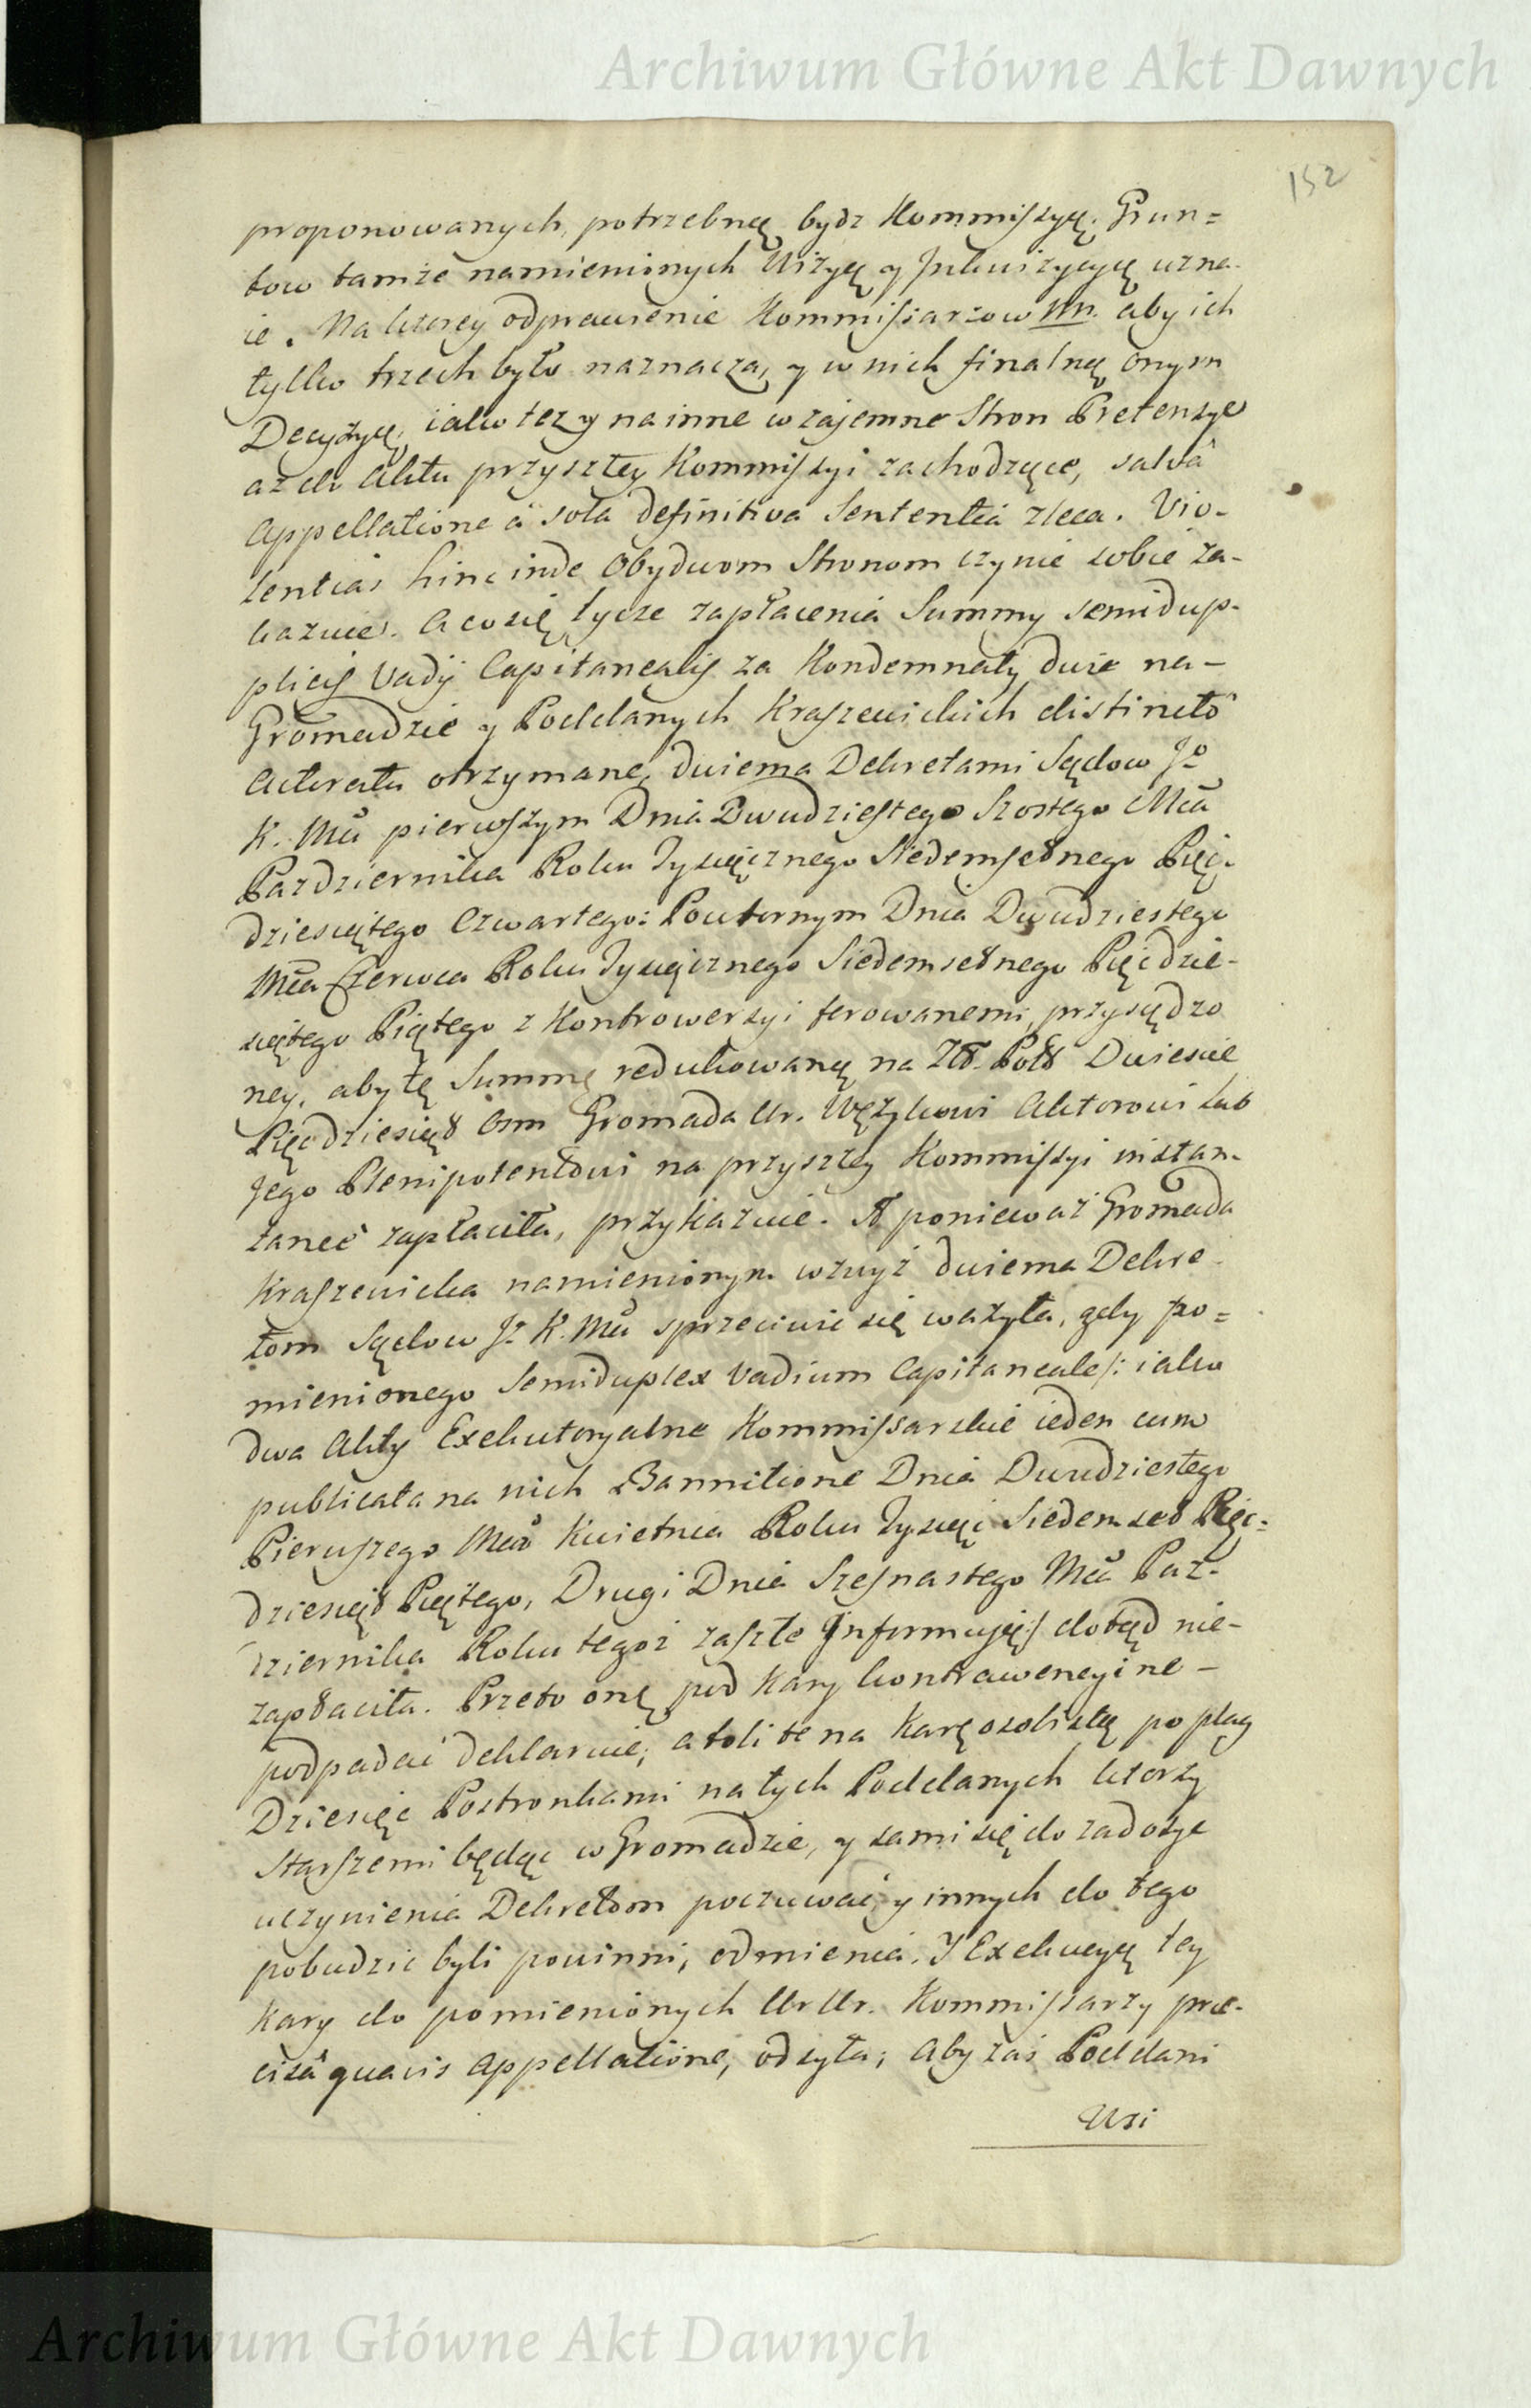 Archiwum Główne Akt Dawnych
152
proponowanych, potrzebną bydz Kommiſsyą. Grun=
tow tamże namienionych Wizyą y Inkwizycyą uzna-
ie. Na ktorey odprawienie Kommiſsarzow aby ich
tylko trzech było naznacza, y w nich finalną onym
Decyzyą, iako też y na inne wzajemne Stron Pretensye
aż do Aktu przyszłey Kommiſsyi zachodzące, salvâ
Appellatione à sola definitiva Sententia zleca. Vio-
lentias hinc inde Obydwom Stronom czynić sobie za-
kazuie. A co się tycze zapłacenia Summy semidup-
plicis Vadij Capitanealis za Kondemnaty dwie na-
Gromadzie y Poddanych Kraszewickich distincto
Actoratu otrzymane, dwiema Dekretami Sądow Jo
K. Mci pierwſzym Dnia Dwudzieſtego Szostego Mca
Pazdziernika Roku Tysięcznego Siedemſetnego Pięć-
dziesiątego Czwartego: Powtornym Dnia Dwudziestego
Mca Czerwca Roku Tysięcznego Siedemsetnego Pięćdzie-
siątego Piątego z Kontrowersyi ferowanemi, przysądzo
ney, aby tę Summę redukowaną na Złł. Polł Dwiescie
Pięćdziesiąt Osm Gromada Ur. Wężykowi Aktorowi lub
Jego Plenipotentowi na przyszłey Kommiſsyi instan-
taneè zapłaciła, przykazuie. A ponieważ Gromada
Kraſzewicka namienionym wzwyż dwiema Dekre-
tom Sądow Jo K. Mci sprzeciwić się ważyła, gdy po=
mienionego Semiduplex Vadium Capitaneale/: iako
dwa Akty Exekutoryalne Kommiſsarskie ieden cum
publicata na nich Bannitione Dnia Dwudziestego
Pierwſzego Mca Kwietnia Roku Tysiąc Siedemset Pięć=
dziesiąt Piątego, Drugi Dnia Szeſnastego Mca Paz-
dziernika Roku tegoż zaſzłe Jnformują:/ dotąd nie-
zapłaciła. Przeto onę pod kary kontrawencyine-
podpadać deklaruie, a toli te na karę osobistą po plag
Dziesięć Postronkami na tych Poddanych ktorzy
Starſzemi będąc w Gromadzie, y sami się do zadosyć
uczynienia Dekretom poczuwać, y innych do tego
pobudzić byli powinni, odmienia. Y Exekucyą tey
kary do pomienionych Ur Ur. Kommiſsarzy præ-
cisâ quavis Appellatione, odsyła; Aby zaś Poddani
Wsi
Archiwum Główne Akt Dawnych